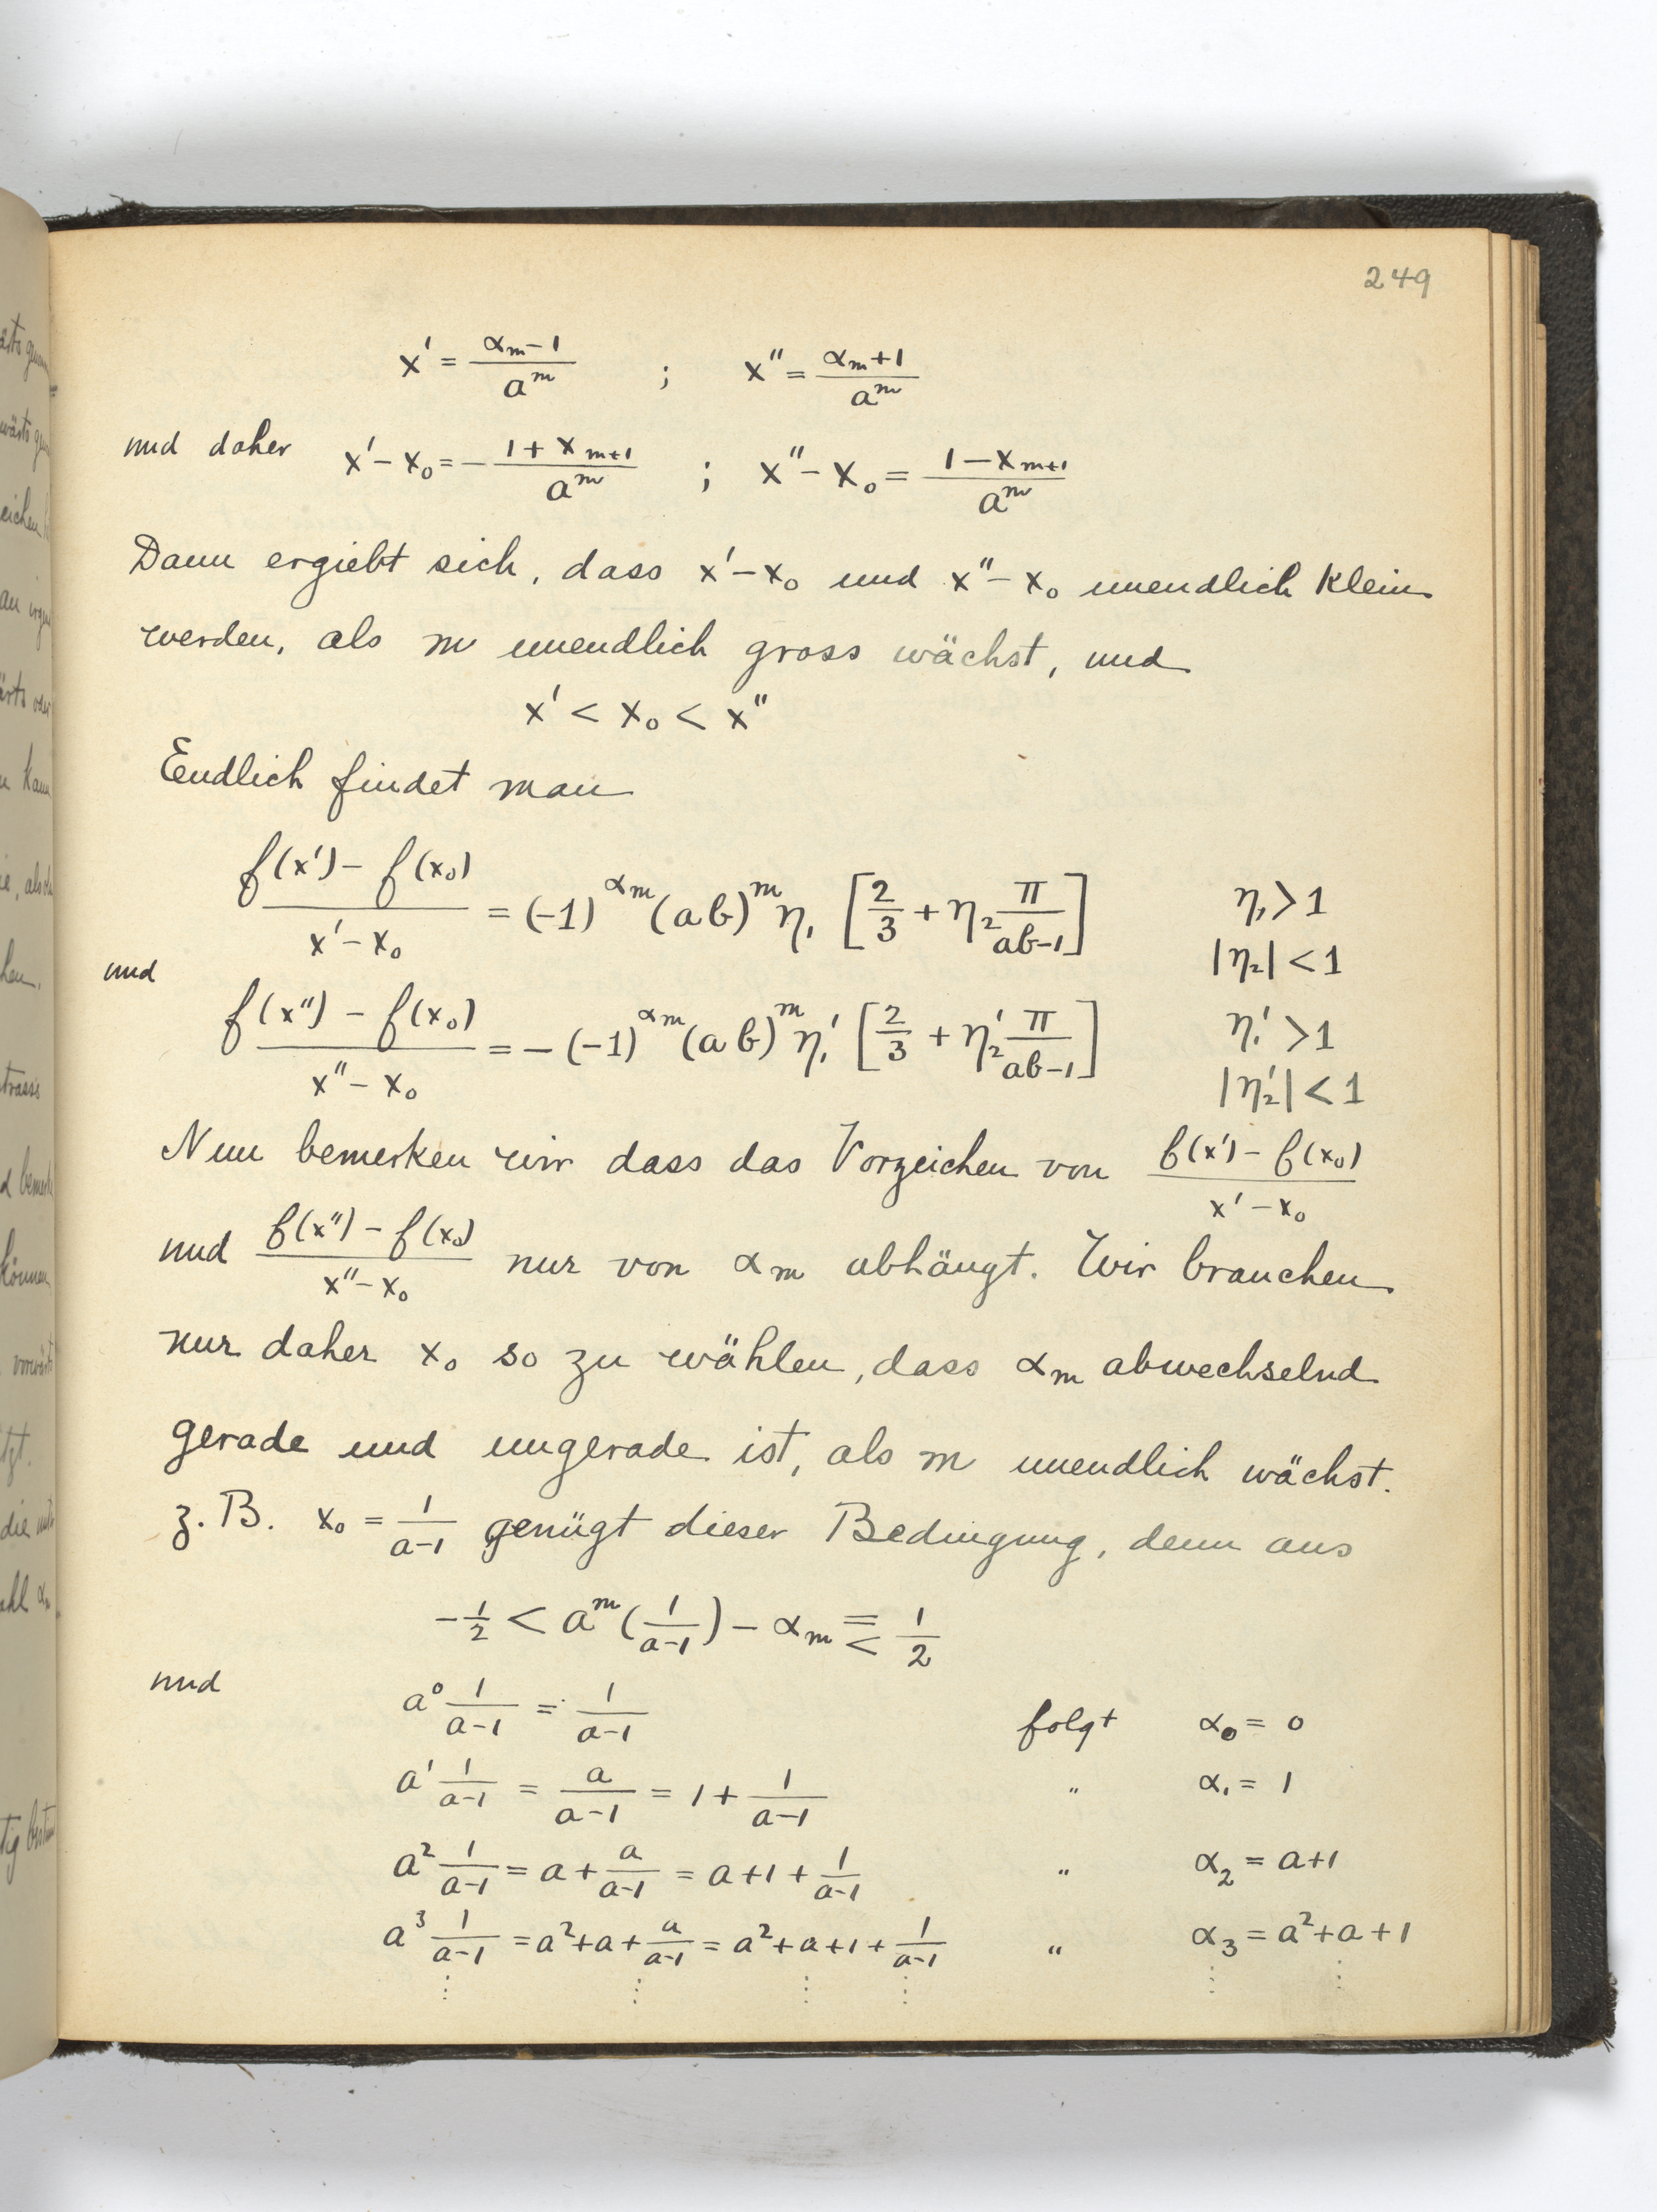 249
x' = (α_m − 1)/a^m ; x'' = (α_m + 1)/a^m
und daher x' − x_0 = − (1 + x_{m+1})/a^m ; x'' − x_0 = (1 − x_{m+1})/a^m
Dann ergiebt sich, dass x' − x_0 und x'' − x_0 unendlich klein
werden, als m unendlich gross wächst, und
x' < x_0 < x''
Endlich findet man
(f(x') − f(x_0))/(x' − x_0) = (−1)^{α_m} (ab)^m η_1 [2/3 + η_2 π/(ab−1)] η_1 > 1
|η_2| < 1
und
(f(x'') − f(x_0))/(x'' − x_0) = − (−1)^{α_m} (ab)^m η_1' [2/3 + η_2' π/(ab−1)] η_1' > 1
|η_2'| < 1
Nun bemerken wir dass das Vorzeichen von (f(x') − f(x_0))/(x' − x_0)
und (f(x'') − f(x_0))/(x'' − x_0) nur von α_m abhängt. Wir brauchen
nur daher x_0 so zu wählen, dass α_m abwechselnd
gerade und ungerade ist, als m unendlich wächst.
z. B. x_0 = 1/(a−1) genügt dieser Bedingung, denn aus
−1/2 < a^m (1/(a−1)) − α_m ≦ 1/2
und
a^0 1/(a−1) = 1/(a−1) folgt α_0 = 0
a^1 1/(a−1) = a/(a−1) = 1 + 1/(a−1) " α_1 = 1
a^2 1/(a−1) = a + a/(a−1) = a+1 + 1/(a−1) " α_2 = a+1
a^3 1/(a−1) = a^2+a+ a/(a−1) = a^2+a+1+ 1/(a−1) " α_3 = a^2+a+1
⋮ ⋮ ⋮ ⋮ ⋮ ⋮